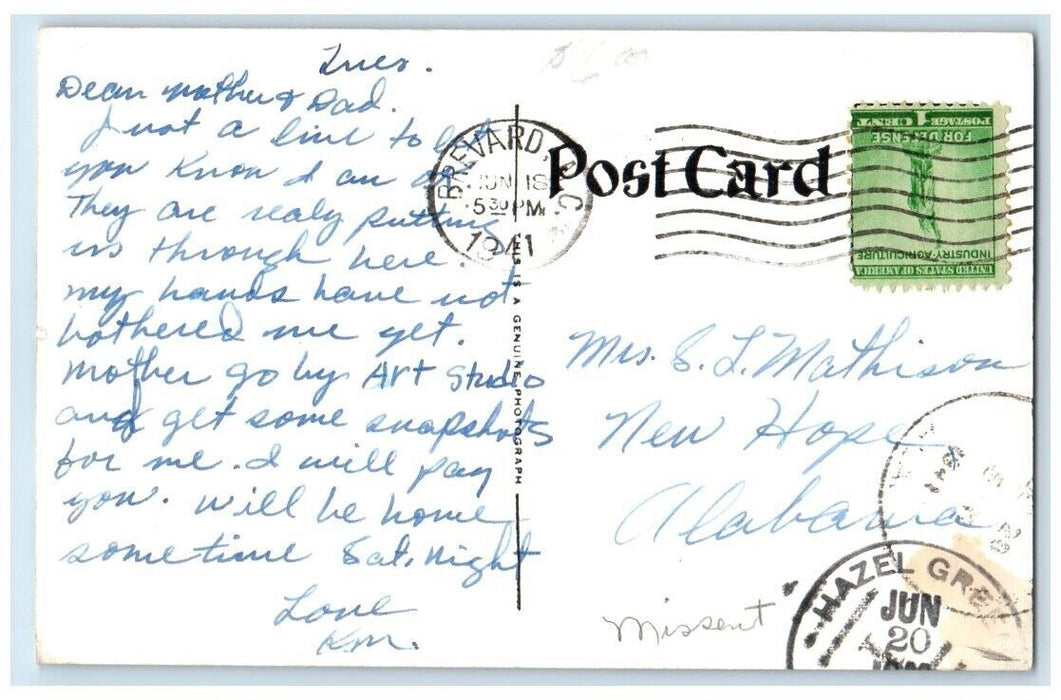 Tues.
Dear Mother & Dad.
Just a line to let
you know I am ok
They are realy putting
us through here.
my hands have not
bothered me yet.
Mother go by Art Studio
and get some snapshots
for me. I will pay
you. will be home
sometime Sat. Night
Love
Km.
$6.00
BREVARD, N.C.
JUN 18
5 30 PM
1941
THIS IS A GENUINE PHOTOGRAPH
Post Card
UNITED STATES OF AMERICA
INDUSTRY-AGRICULTURE
FOR DEFENSE
1 CENT
POSTAGE
Mrs. S. L. Mathison
New Hope
Alabama
Missent
HAZEL GREE
JUN
20